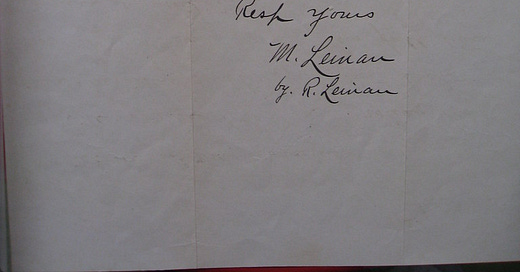 Resp Yours
M. Leinau
by. R. Leinau